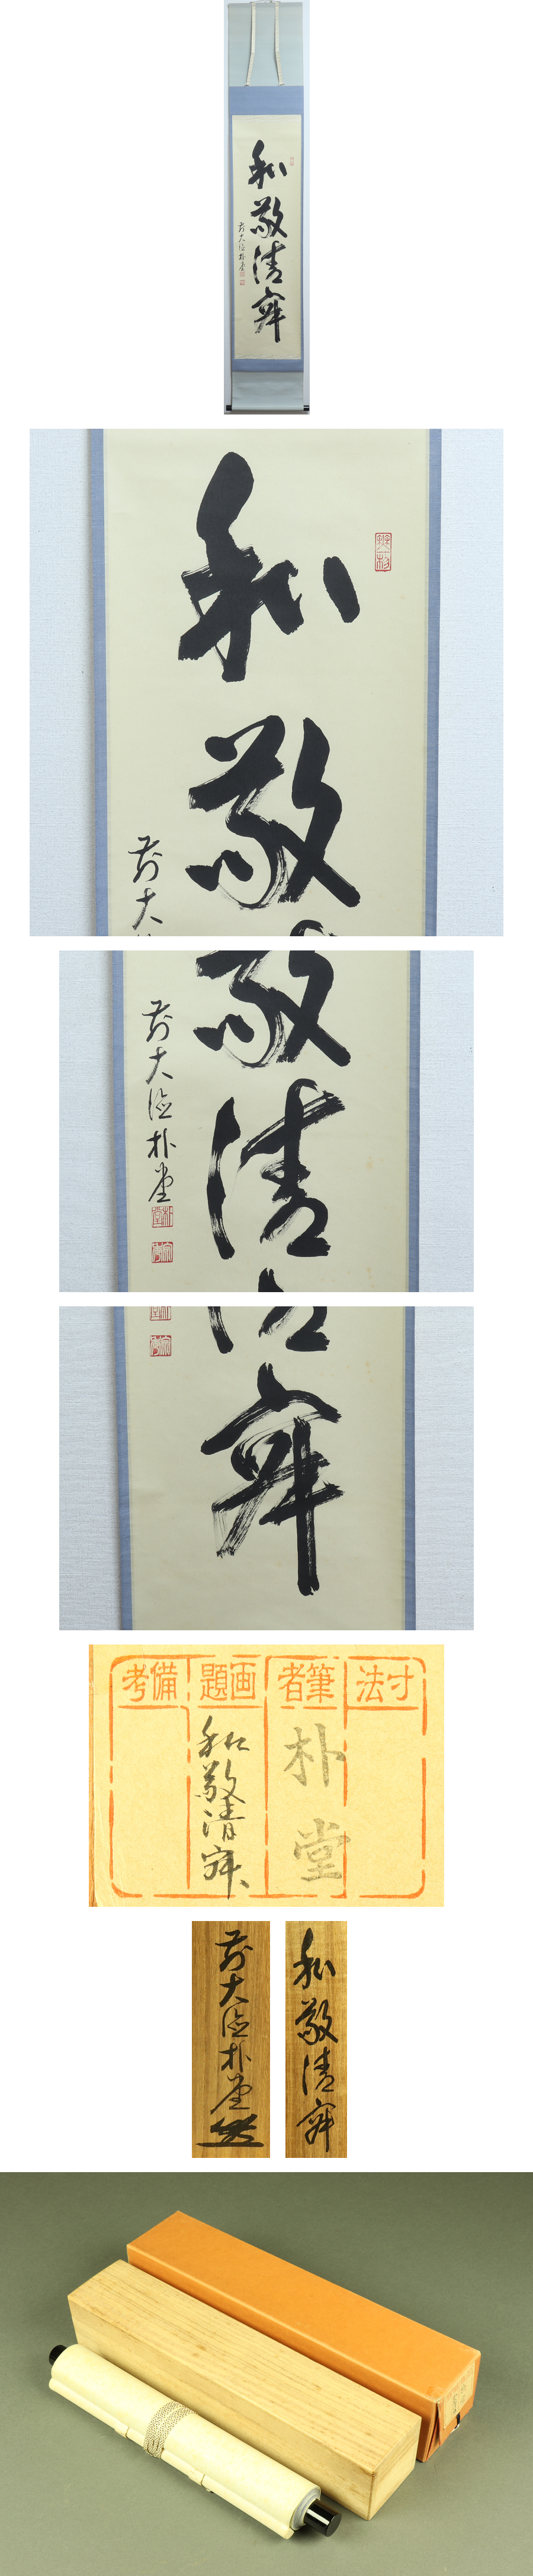 和敬清寂
前大徳朴堂
和敬
前大
敬清
前大徳朴堂
朴堂
寂
寸法
筆者
画題
備考
朴堂
和敬清寂
和敬清寂
前大徳朴堂